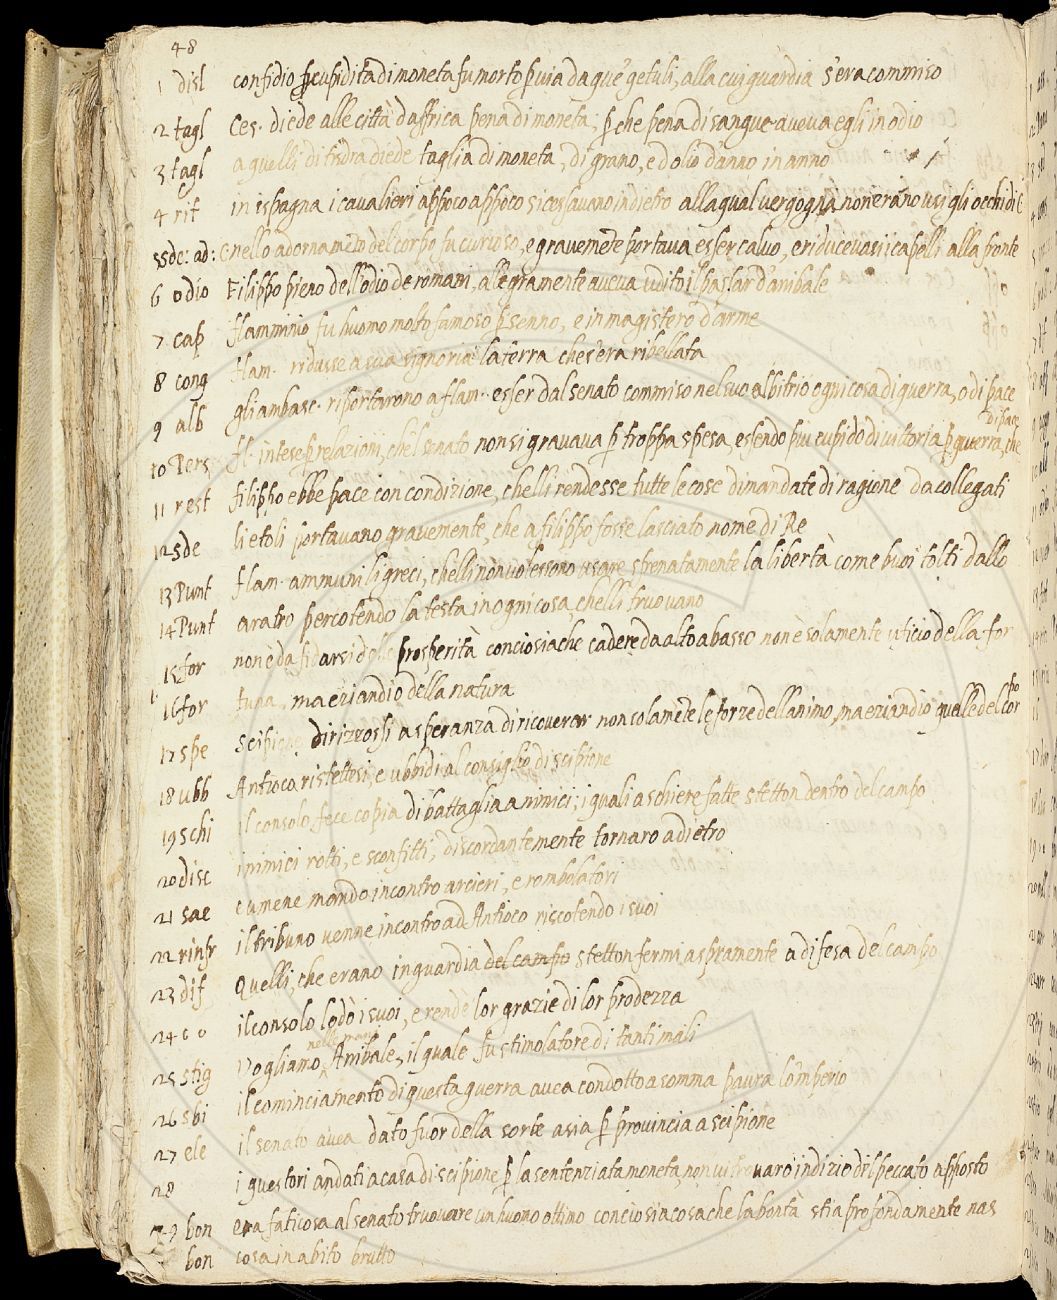 48
1 disl confidio p cupidità di moneta fu morto p via da que' getuli, alla cui guardia s'era commiso
2 tagl Ces. diede alle città d'affrica pena di moneta; p che pena di sangue aveva egli in odio
3 tagl a quelli di tisdra diede taglia di moneta, di grano, e d'olio d'anno in anno
4 rit in ispagna i cavalieri appoco appoco si cessavano indietro alla qual vergogna non erano usi gli occhi di C
5 sde: ad: C nello adornamēto del corpo fu curioso, e gravemēte portava esser calvo, e riducevasi i capelli alla fronte
6 odio Filippo pieno dell'odio de romani, allegramente aveva udito il passar d'anibale
7 cap flamminio fu huomo molto famoso p senno, e in magistero d'arme
8 cong flam. ridusse a sua signoria la terra che s'era ribellata
9 alb gli ambasc. riportarono a flam. esser dal senato commiso nel suo albitrio ogni cosa di guerra, o di pace
10 Pers fl. intese p relazioni, che'l senato non si gravava p troppa spesa, essendo più cupido di vittoria p guerra, che
di pace
11 rest filippo ebbe pace con condizione, che lli rendesse tutte le cose dimandate di ragione da collegati
12 sde li etoli portavano gravemente, che a filippo fosse lasciato nome di Re
13 Punt flam. ammunì li greci, che lli non volessono usare sfrenatamente la libertà come buoi tolti dallo
14 Punt aratro percotendo la testa in ogni cosa, che lli truovano
15 for non è da fidarsi delle prosperità conciosiache cadere da alto a basso non è solamente uficio della for
16 for tuna, ma eziandio della natura
17 spe Scipione dirizzossi a speranza di ricoverar non solamēte le forze dell animo, ma eziandio quelle del cor
po
18 ubb Antioco ristettesi, e ubbidì al consiglio di scipione
19 schi il consolo fece copia di battaglia a nimici; i quali a schiere fatte stetton dentro del campo
20 disc i nimici rotti, e sconfitti, discordantemente tornaro adietro
21 sae eumene mandò incontro arcieri, e rombolatori
22 rinfr il tribuno venne incontro ad Antioco riscotendo i suoi
23 dif Quelli, che erano in guardia del campo stetton fermi aspramente a difesa del campo
24 co il consolo lodò i suoi, e rendè lor grazie di lor prodezza
nelle mani
25 stig Vogliamo Anibale, il quale fu stimolatore di tanti mali
26 sbi il cominciamento di questa guerra avea condotto a somma paura lo'mperio
27 ele il senato avea dato fuor della sorte asia p provincia a scipione
28 i questori andati a casa di scipione p la sentenziata moneta, non vi trovaro indizio del peccato apposto
29 bon era faticosa al senato truovare un huomo ottimo conciosiacosache la bontà stia profondamente nas
bon cosa in abito brutto